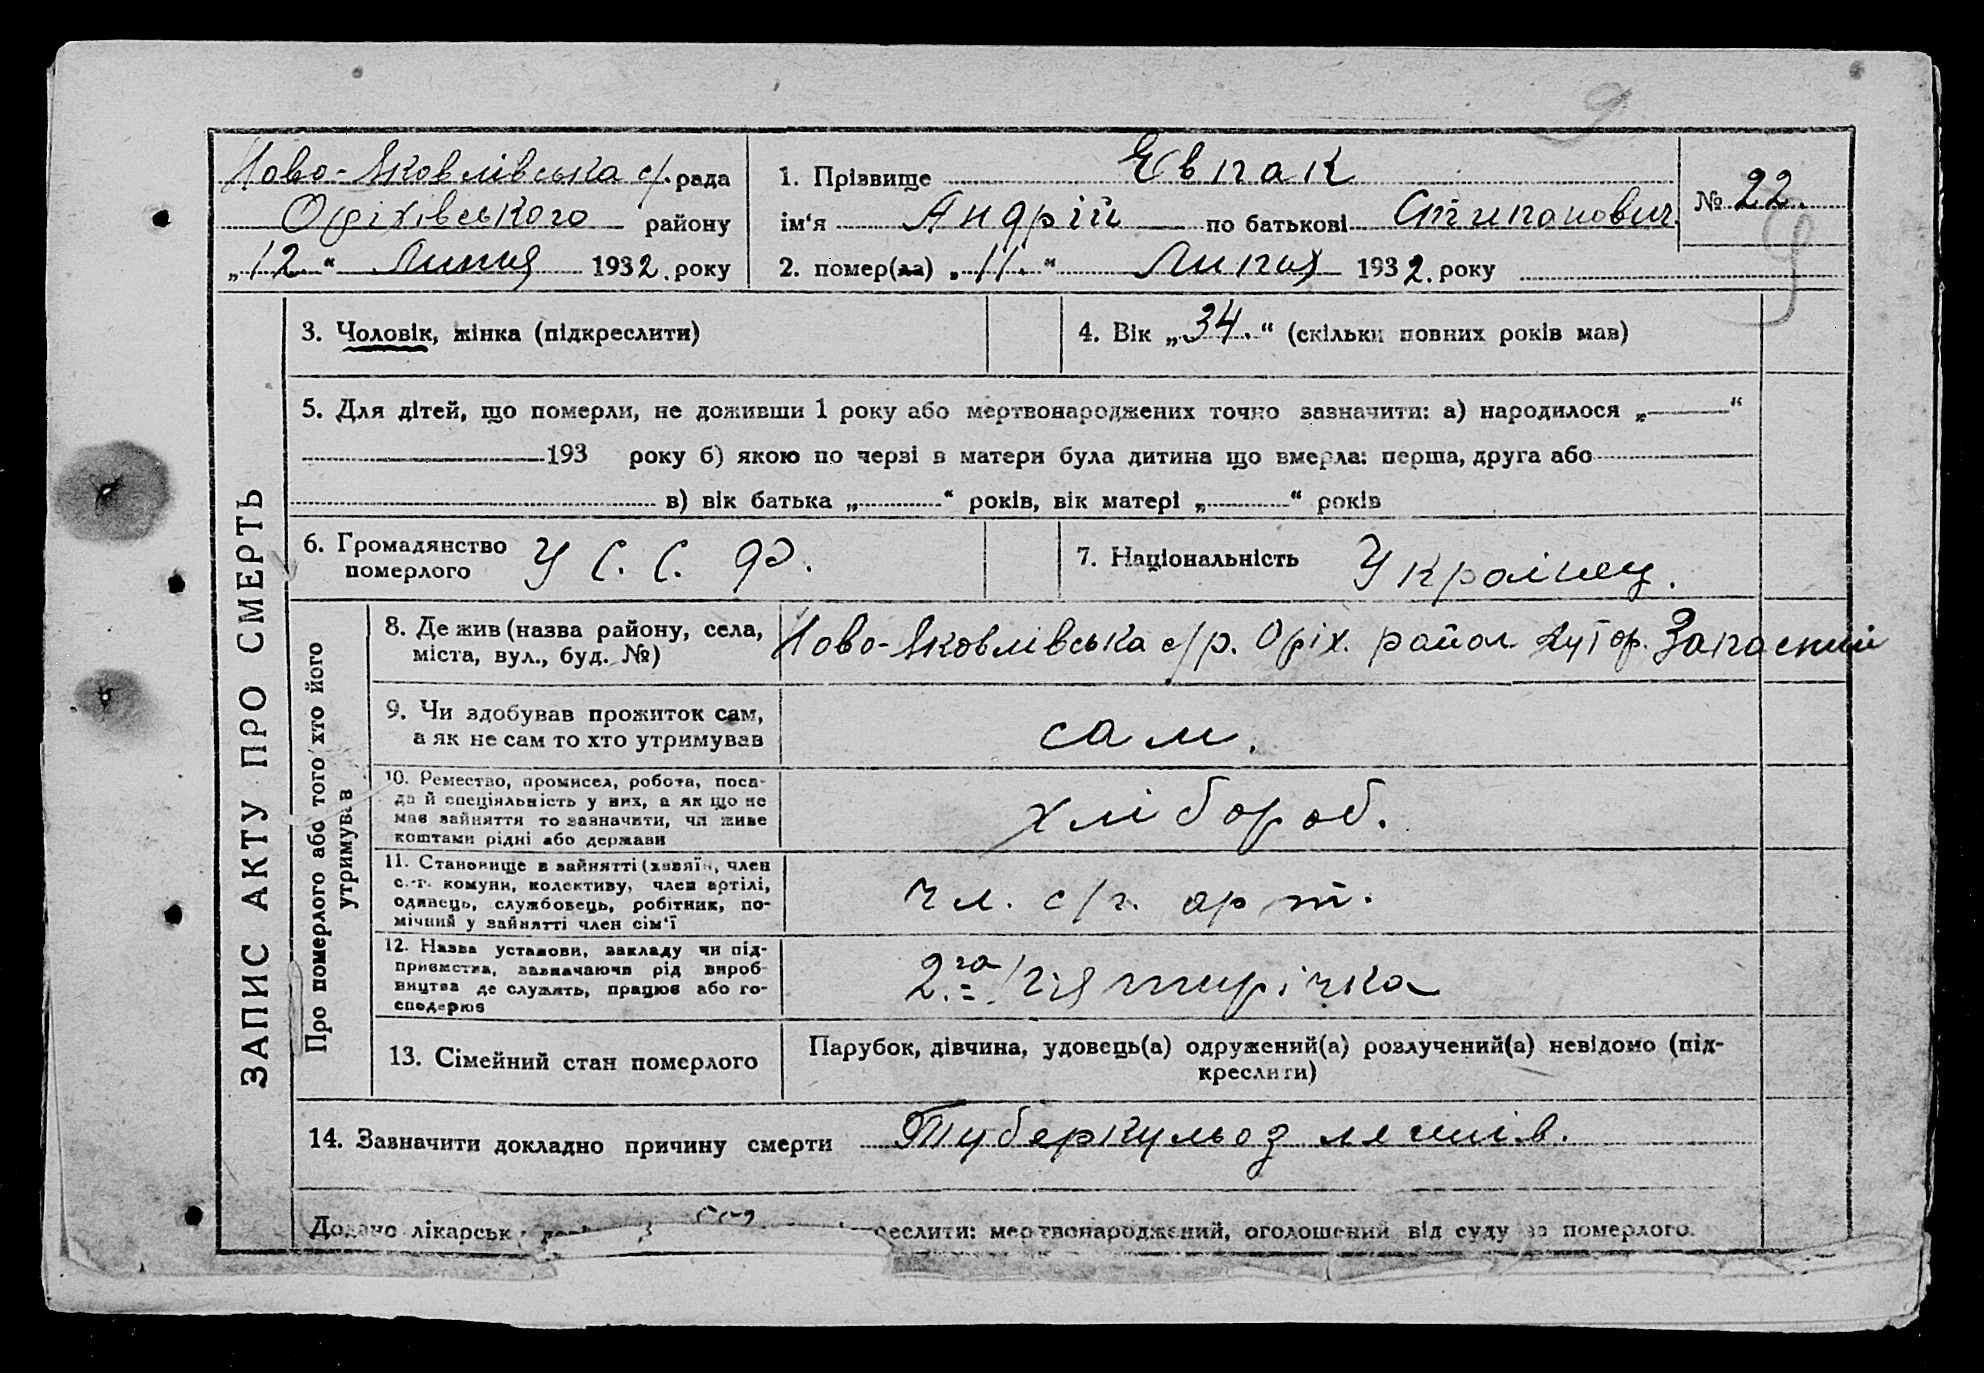 Ново-Яковлівська с/. рада
Оріхівського району
„12.“ Липня 1932. року
1. Прізвище Євпак
ім‘я Андрій по батькові Стипанович.
2. помер(ла) „11.“ Липня 1932. року
№ 22.
9
ЗАПИС АКТУ ПРО СМЕРТЬ
3. Чоловік, жінка (підкреслити)
4. Вік „34.“ (скільки повних років мав)
5. Для дітей, що померли, не доживши 1 року або мертвонароджених точно зазначити: а) народилося „ “
193 року б) якою по черзі в матери була дитина що вмерла: перша, друга або
в) вік батька „ “ років, вік матері „ “ років
6. Громадянство
померлого
У С. С. Р.
7. Національність Українец.
Про померлого або того хто його
утримував
8. Де жив (назва району, села,
міста, вул., буд. №)
Ново-Яковлівська с/р. Оріх. район хутор. Запасний
9. Чи здобував прожиток сам,
а як не сам то хто утримував
сам.
10. Ремество, промисел, робота, поса-
да й спеціяльність у них, а як що не
мав зайняття то зазначити, чи живе
коштами рідні або держави
хлібороб.
11. Становище в зайнятті (хазяїн, член
с.-г. комуни, колективу, член артілі,
одинець, службовець, робітник, по-
мічний у зайнятті член сім‘ї
чл. с/г. арт.
12. Назва установи, закладу чи під-
приємства, зазначаючи рід вироб-
ництва де служить, працює або го-
сподарює
2.га пятирічка
13. Сімейний стан померлого
Парубок, дівчина, удовець(а) одружений(а) розлучений(а) невідомо (під-
креслити)
14. Зазначити докладно причину смерти Туберкульоз легшів.
Додано лікарськ реслити: мертвонароджений, оголошений від суду за померлого.